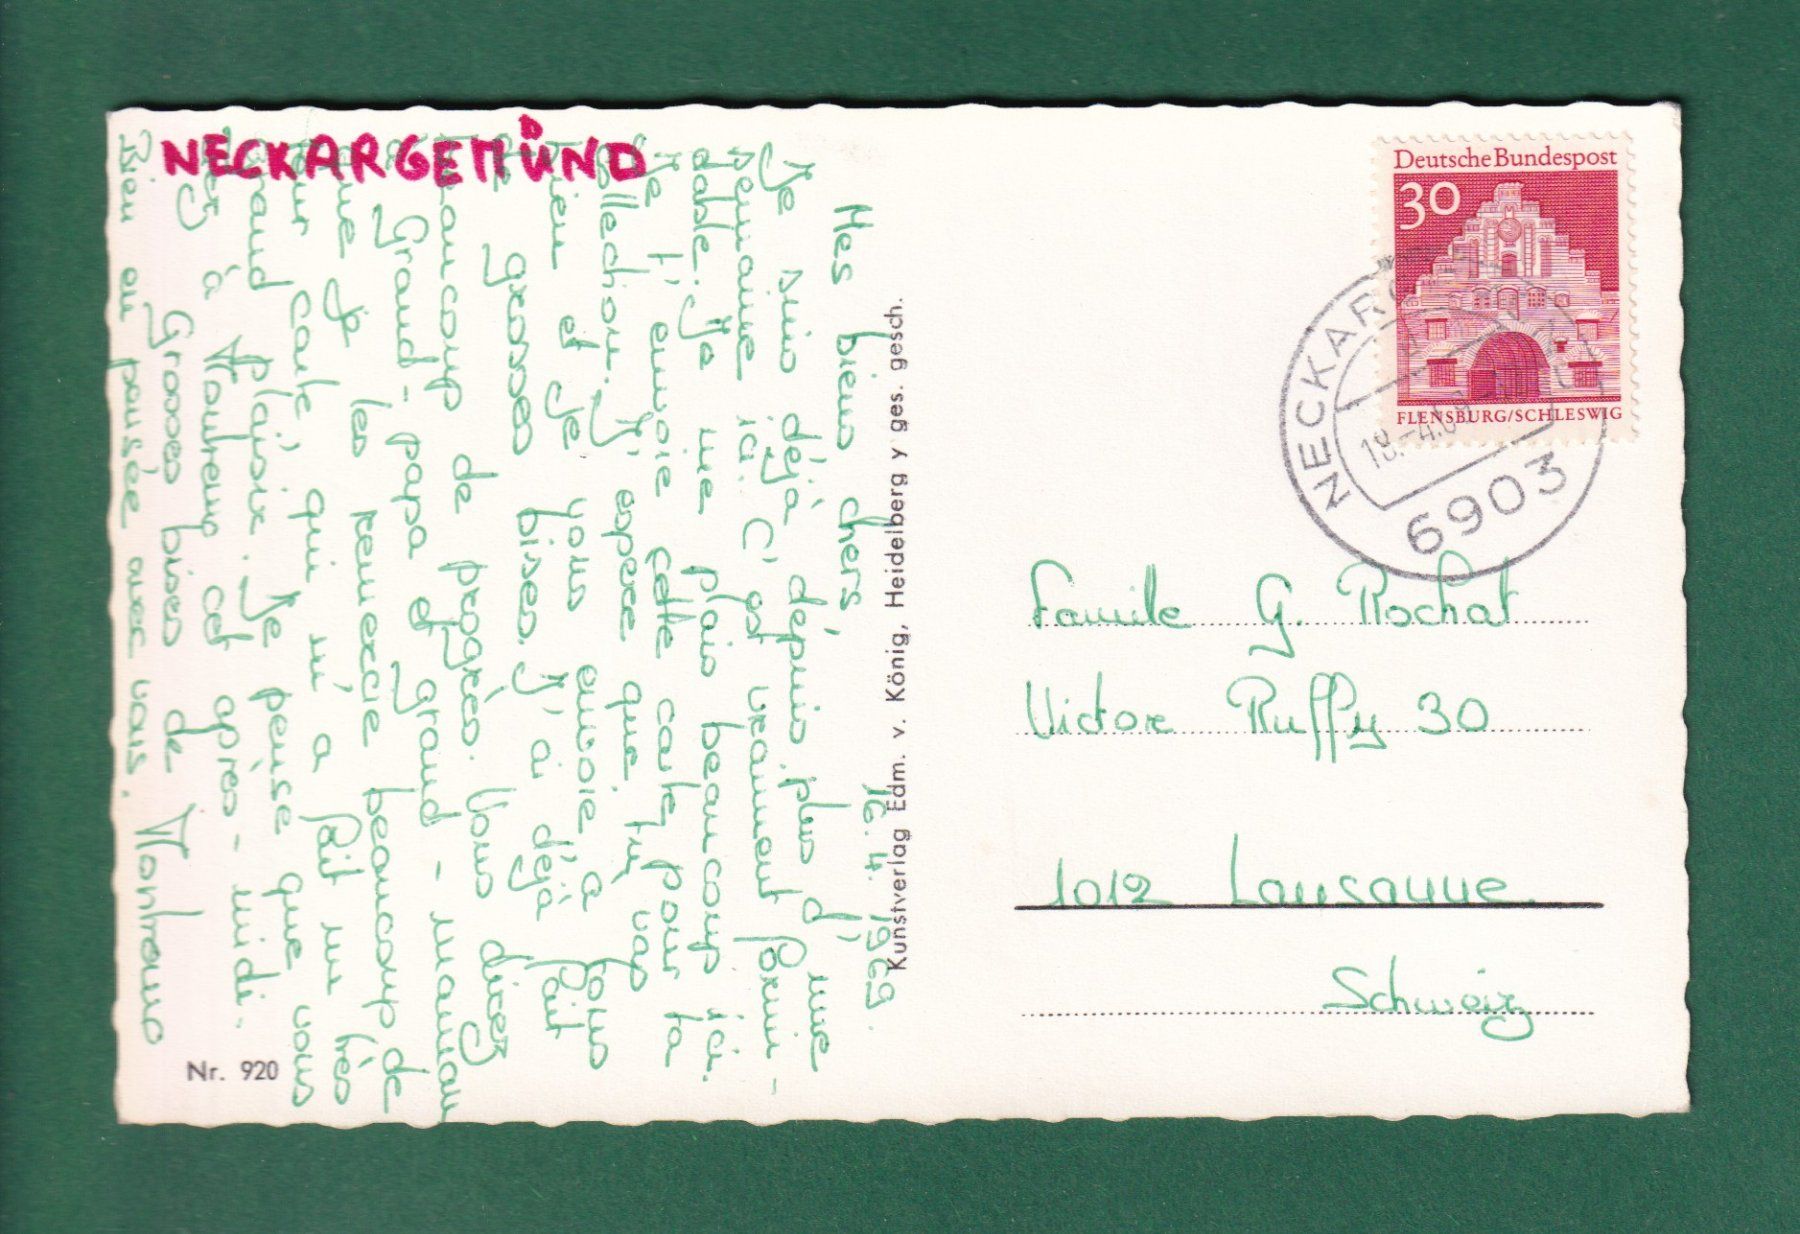 NECKARGEMÜND
D
16.4.1969.
Mes biens chers,
Je suis déjà dépuis plus d'une
semaine ici. C'est vraiment formi-
dable. Je me plais beaucoup ici.
Je t'envoie cette carte pour ta
collection. J'espère que tu vas
bien et je vous envoie a tous
de grosses bises. J'ai déjà fait
beaucoup de progrès. Vous direz
a Grand-papa et grand-maman
que je les remercie beaucoup de
leur carte, qui m'a fait un très
grand plaisir. Je pense que vous
à Montreux cet après-midi.
Grosses bises de Montreux
Bien au pensée avec vous.
Nr. 920
Kunstverlag Edm. v. König, Heidelberg y ges. gesch.
Deutsche Bundespost
30
FLENSBURG/SCHLESWIG
NECKARG
18.-4.6
6903
Famille G. Rochat
Victor Ruffy 30
1012 Lausanne
Schweiz